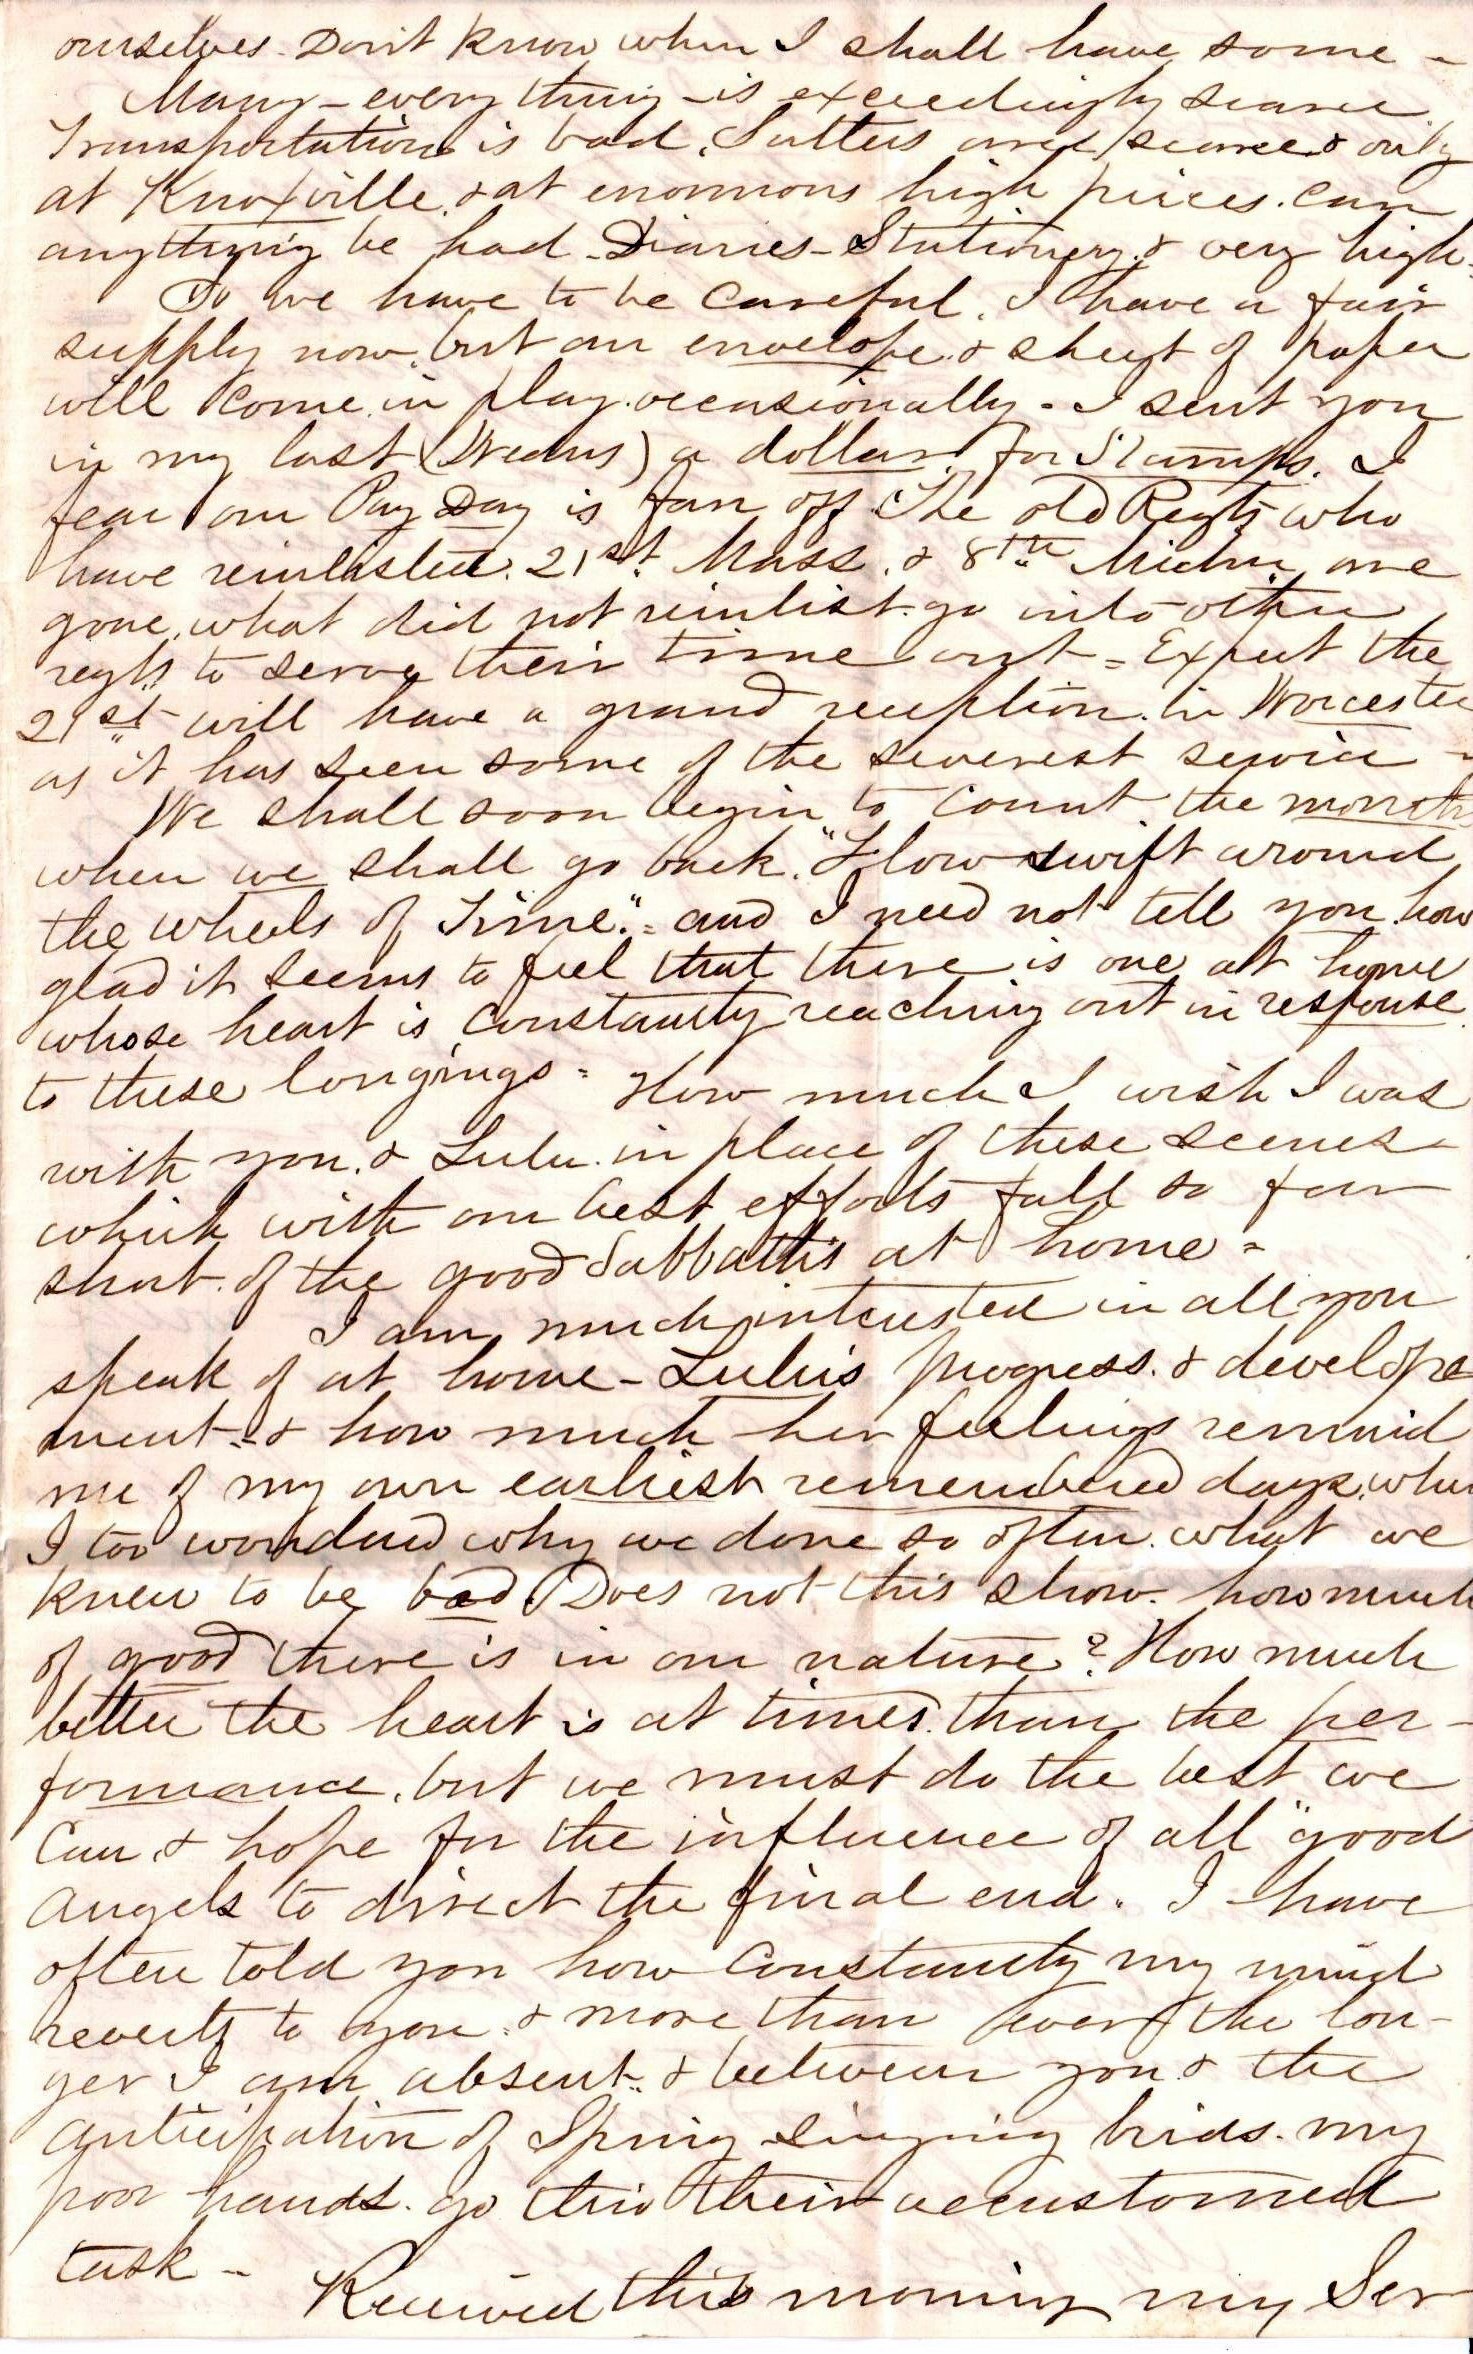 ourselves. Don't know when I shall have some -
Many - every thing - is exceedingly scarce
Transportation is bad, Sutlers are scarce & only
at Knoxville, & at enormous high prices. can
anything be had - Diaries - Stationery & very high.
So we have to be careful. I have a fair
supply now, but an envelope & sheet of paper
will come in play occasionally - I sent you
in my last a dollar for Stamps. I
fear our Pay Day is far off. The old Regts who
have reinlisted. 21st Mass. & 8th Michn are
gone, what did not reinlist go into other
regts to serve their time out = Expect the
21st will have a grand reception in Worcester
as it has seen some of the severest service -
We shall soon begin to count the months
when we shall go back. "How swift around
the wheels of Time". = and I need not tell you how
glad it seems to feel that there is one at home
whose heart is constantly reaching out in response
to these longings = How much I wish I was
with you, & Lulu in place of these scenes
which with our best efforts fall so far
short of the good Sabbaths at home =
I am much interested in all you
speak of at home - Lulu's progress & develope
ment - & how much her feelings remind
me of my own earliest remembered days, when
I too wondered why we done so often what we
knew to be bad. Does not this show how much
of good there is in our nature? How much
better the heart is at times than the per-
formance, but we must do the best we
Can & hope for the influence of all "good
Angels to direct the final end. I have
often told you how constantly my mind
reverts to you, & more than ever the lon-
ger I am absent. & between you & the
anticipation of Spring singing birds. my
poor hands. go thro their accustomed
task -
Received this morning my Ser